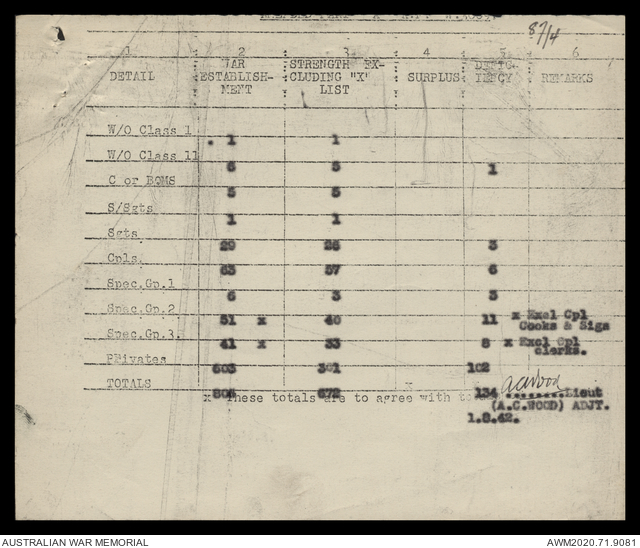 87/4
1 2 3 4 5 6
DETAIL WAR ESTABLISH- MENT STRENGTH EX- CLUDING "X" LIST SURPLUS DEFIC- IENCY REMARKS
W/O Class 1 1 1
W/O Class 11 6 5 1
C or BQMS 5 5
S/Sgts 1 1
Sgts 29 26 3
Cpls. 63 57 6
Spec.Gp.1 6 3 3
Spec.Gp.2 51 x 40 11 x Excl Cpl
Cooks & Sigs
Spec.Gp.3. 41 x 33 8 x Excl Cpl
clerks.
PRivates 603 501 102
TOTALS 806 672 134 ACWood Lieut
x These totals are to agree with
(A.C.WOOD) ADJT.
1.8.42.
AUSTRALIAN WAR MEMORIAL AWM2020.71.9081